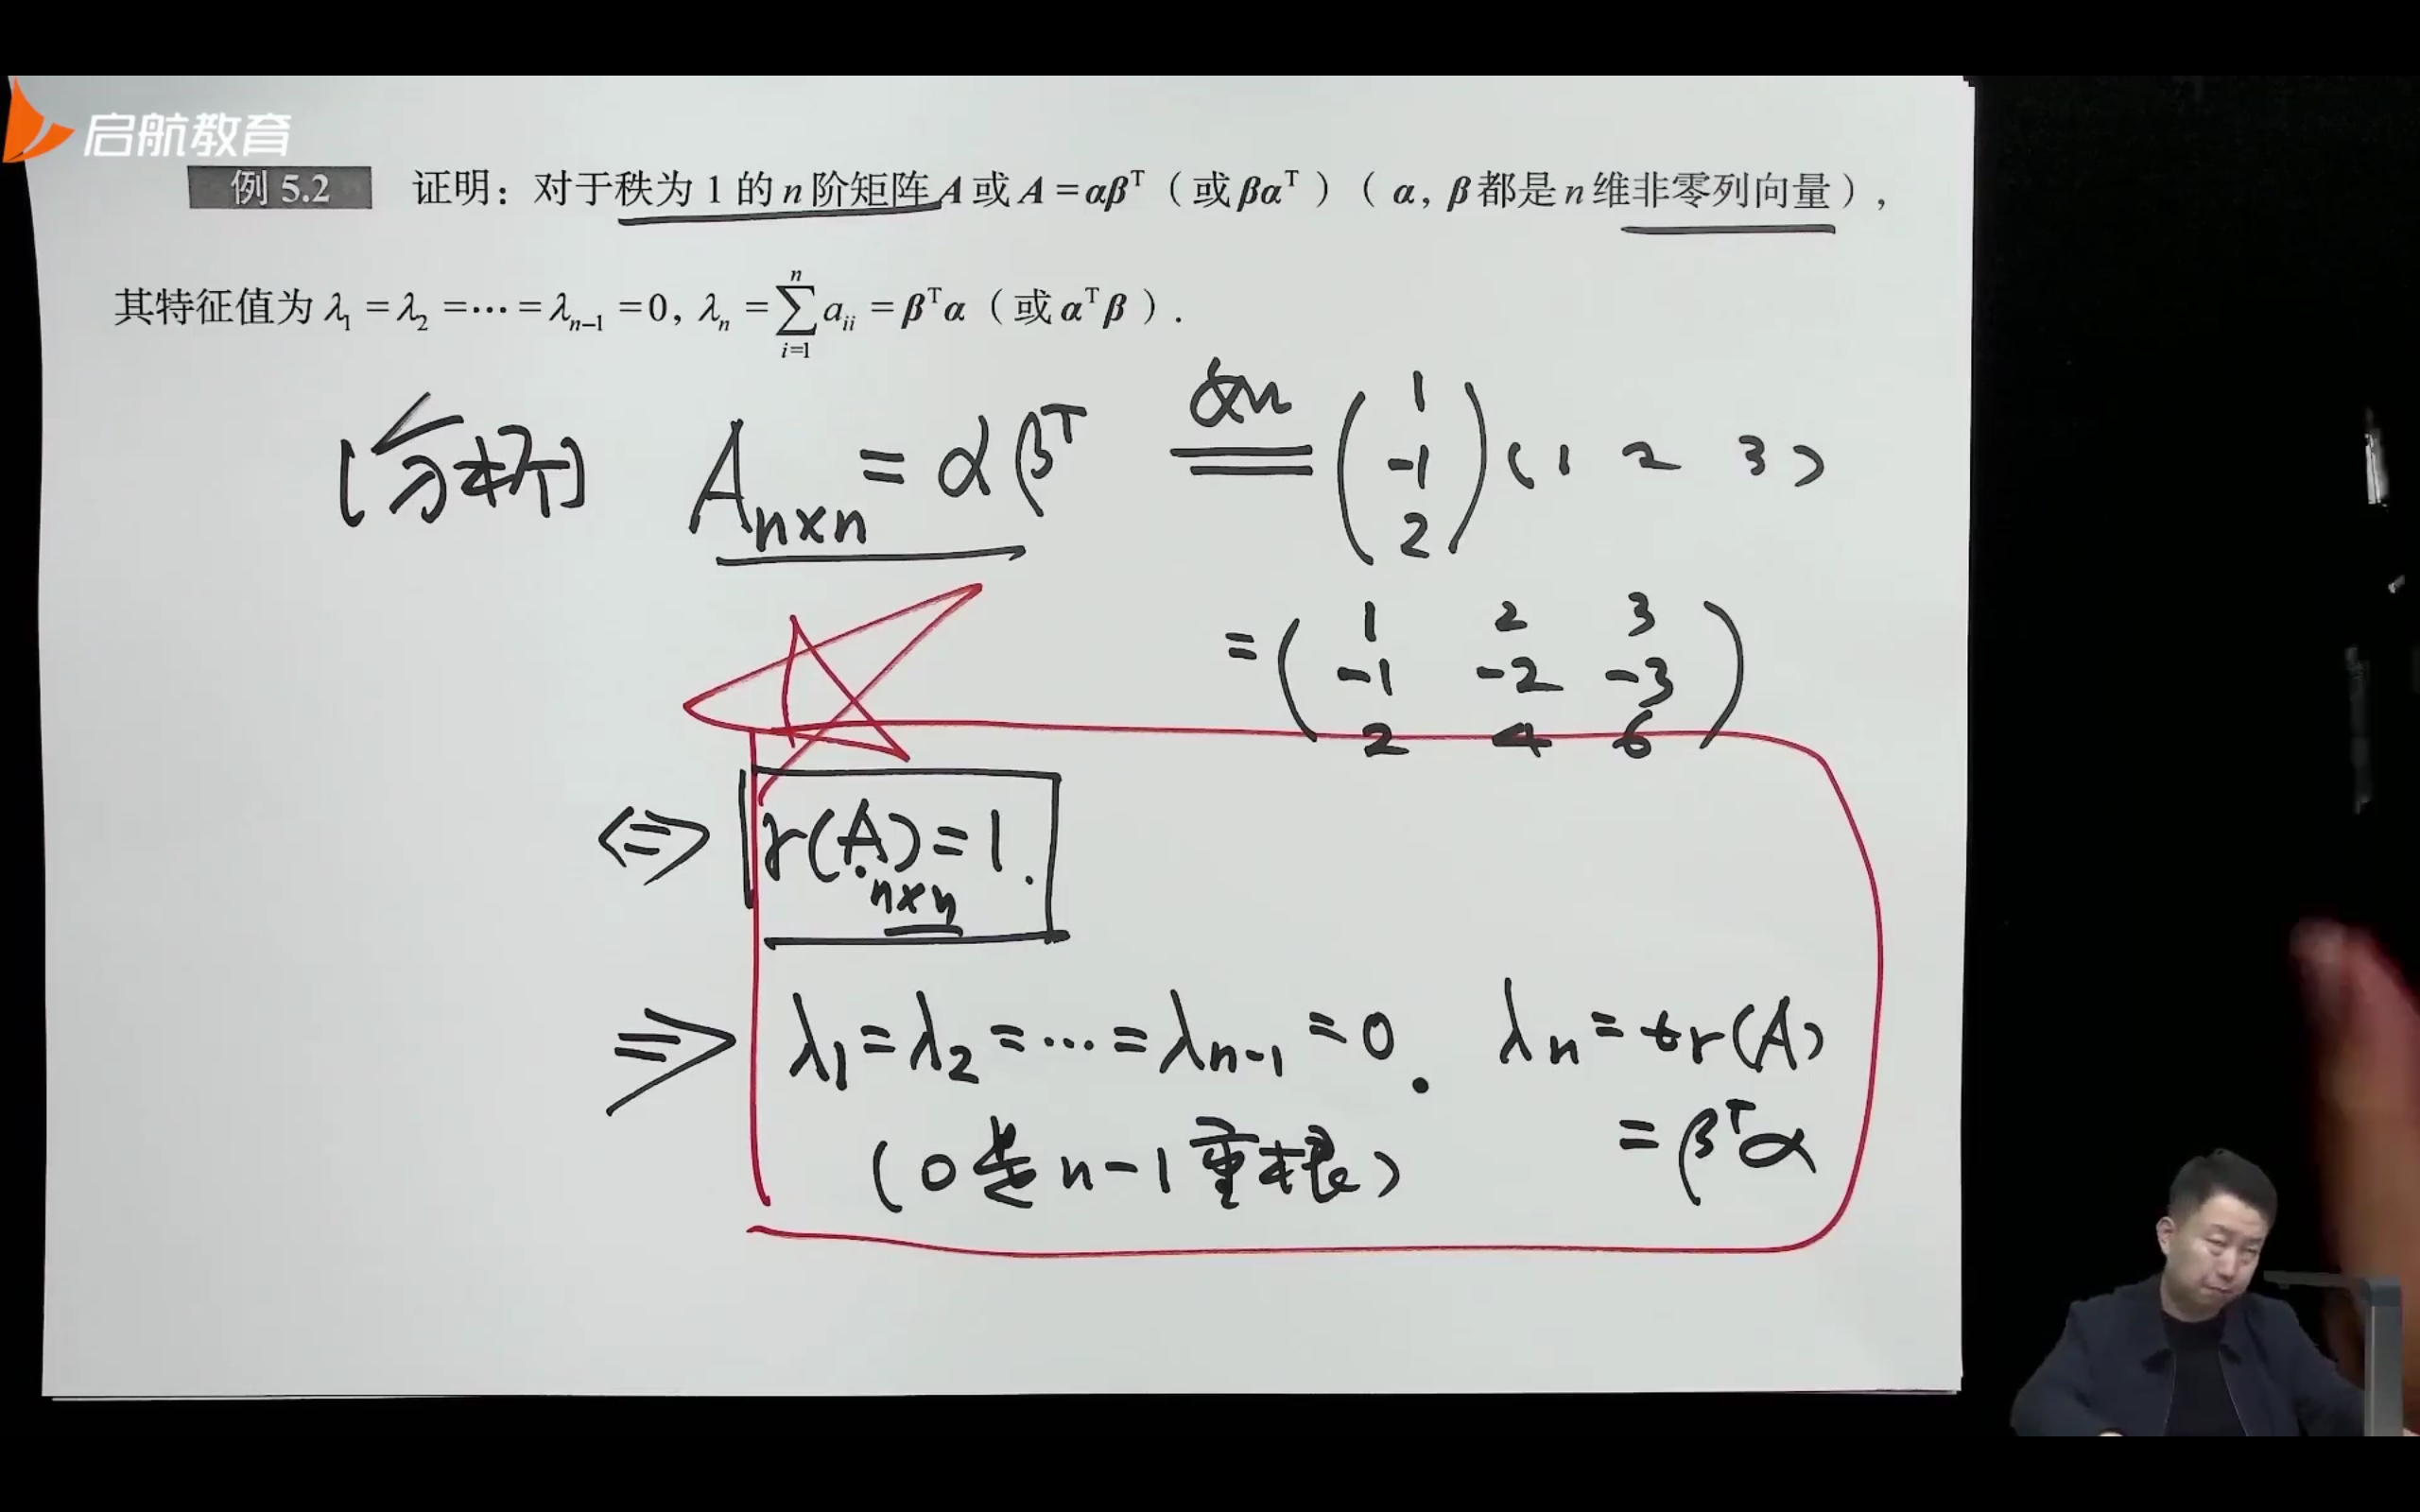 启航教育
例 5.2 证明：对于秩为 1 的 n 阶矩阵 A 或 A = αβᵀ（或 βαᵀ）（ α, β 都是 n 维非零列向量），
其特征值为 λ₁ = λ₂ = ⋯ = λₙ₋₁ = 0, λₙ = ∑ᵢ₌₁ⁿ aᵢᵢ = βᵀα（或 αᵀβ）.
[分析] Aₙₓₙ = αβᵀ 如 (1 -1 2) (1 2 3)
= ( 1 2 3
-1 -2 -3
2 4 6 )
⇔ r(Aₙₓₙ) = 1.
⇒ λ₁ = λ₂ = ⋯ = λₙ₋₁ = 0. λₙ = tr(A)
(0是n-1重根) = βᵀα